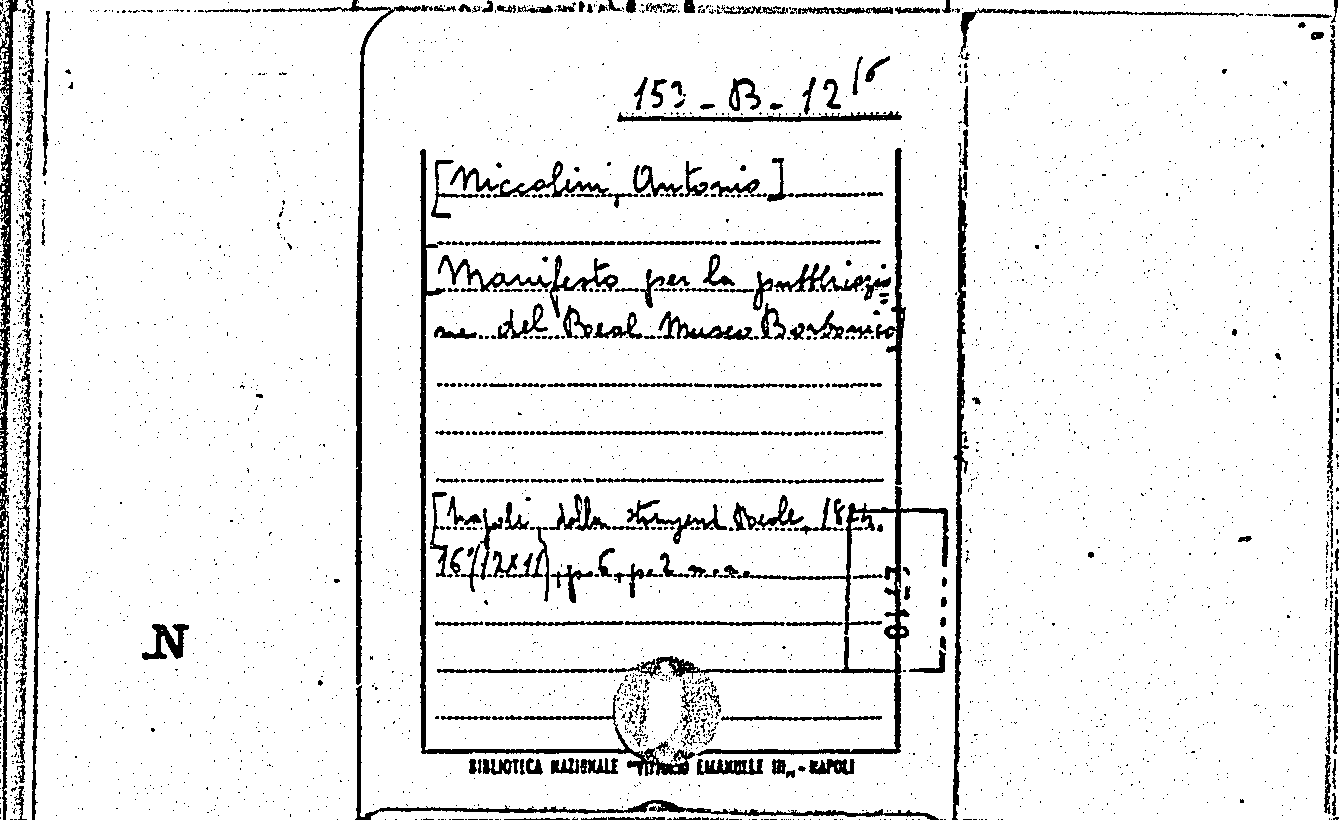 153 - B - 12 16
[Niccolini, Antonio]
Manifesto per la pubblicazio=
ne del Real Museo Borbonico
[Napoli, dalla Stamperia Reale,
16° (12x11), p. 6, p. 2 n.n.
N
BIBLIOTECA NAZIONALE "VITTORIO EMANUELE III" - NAPOLI